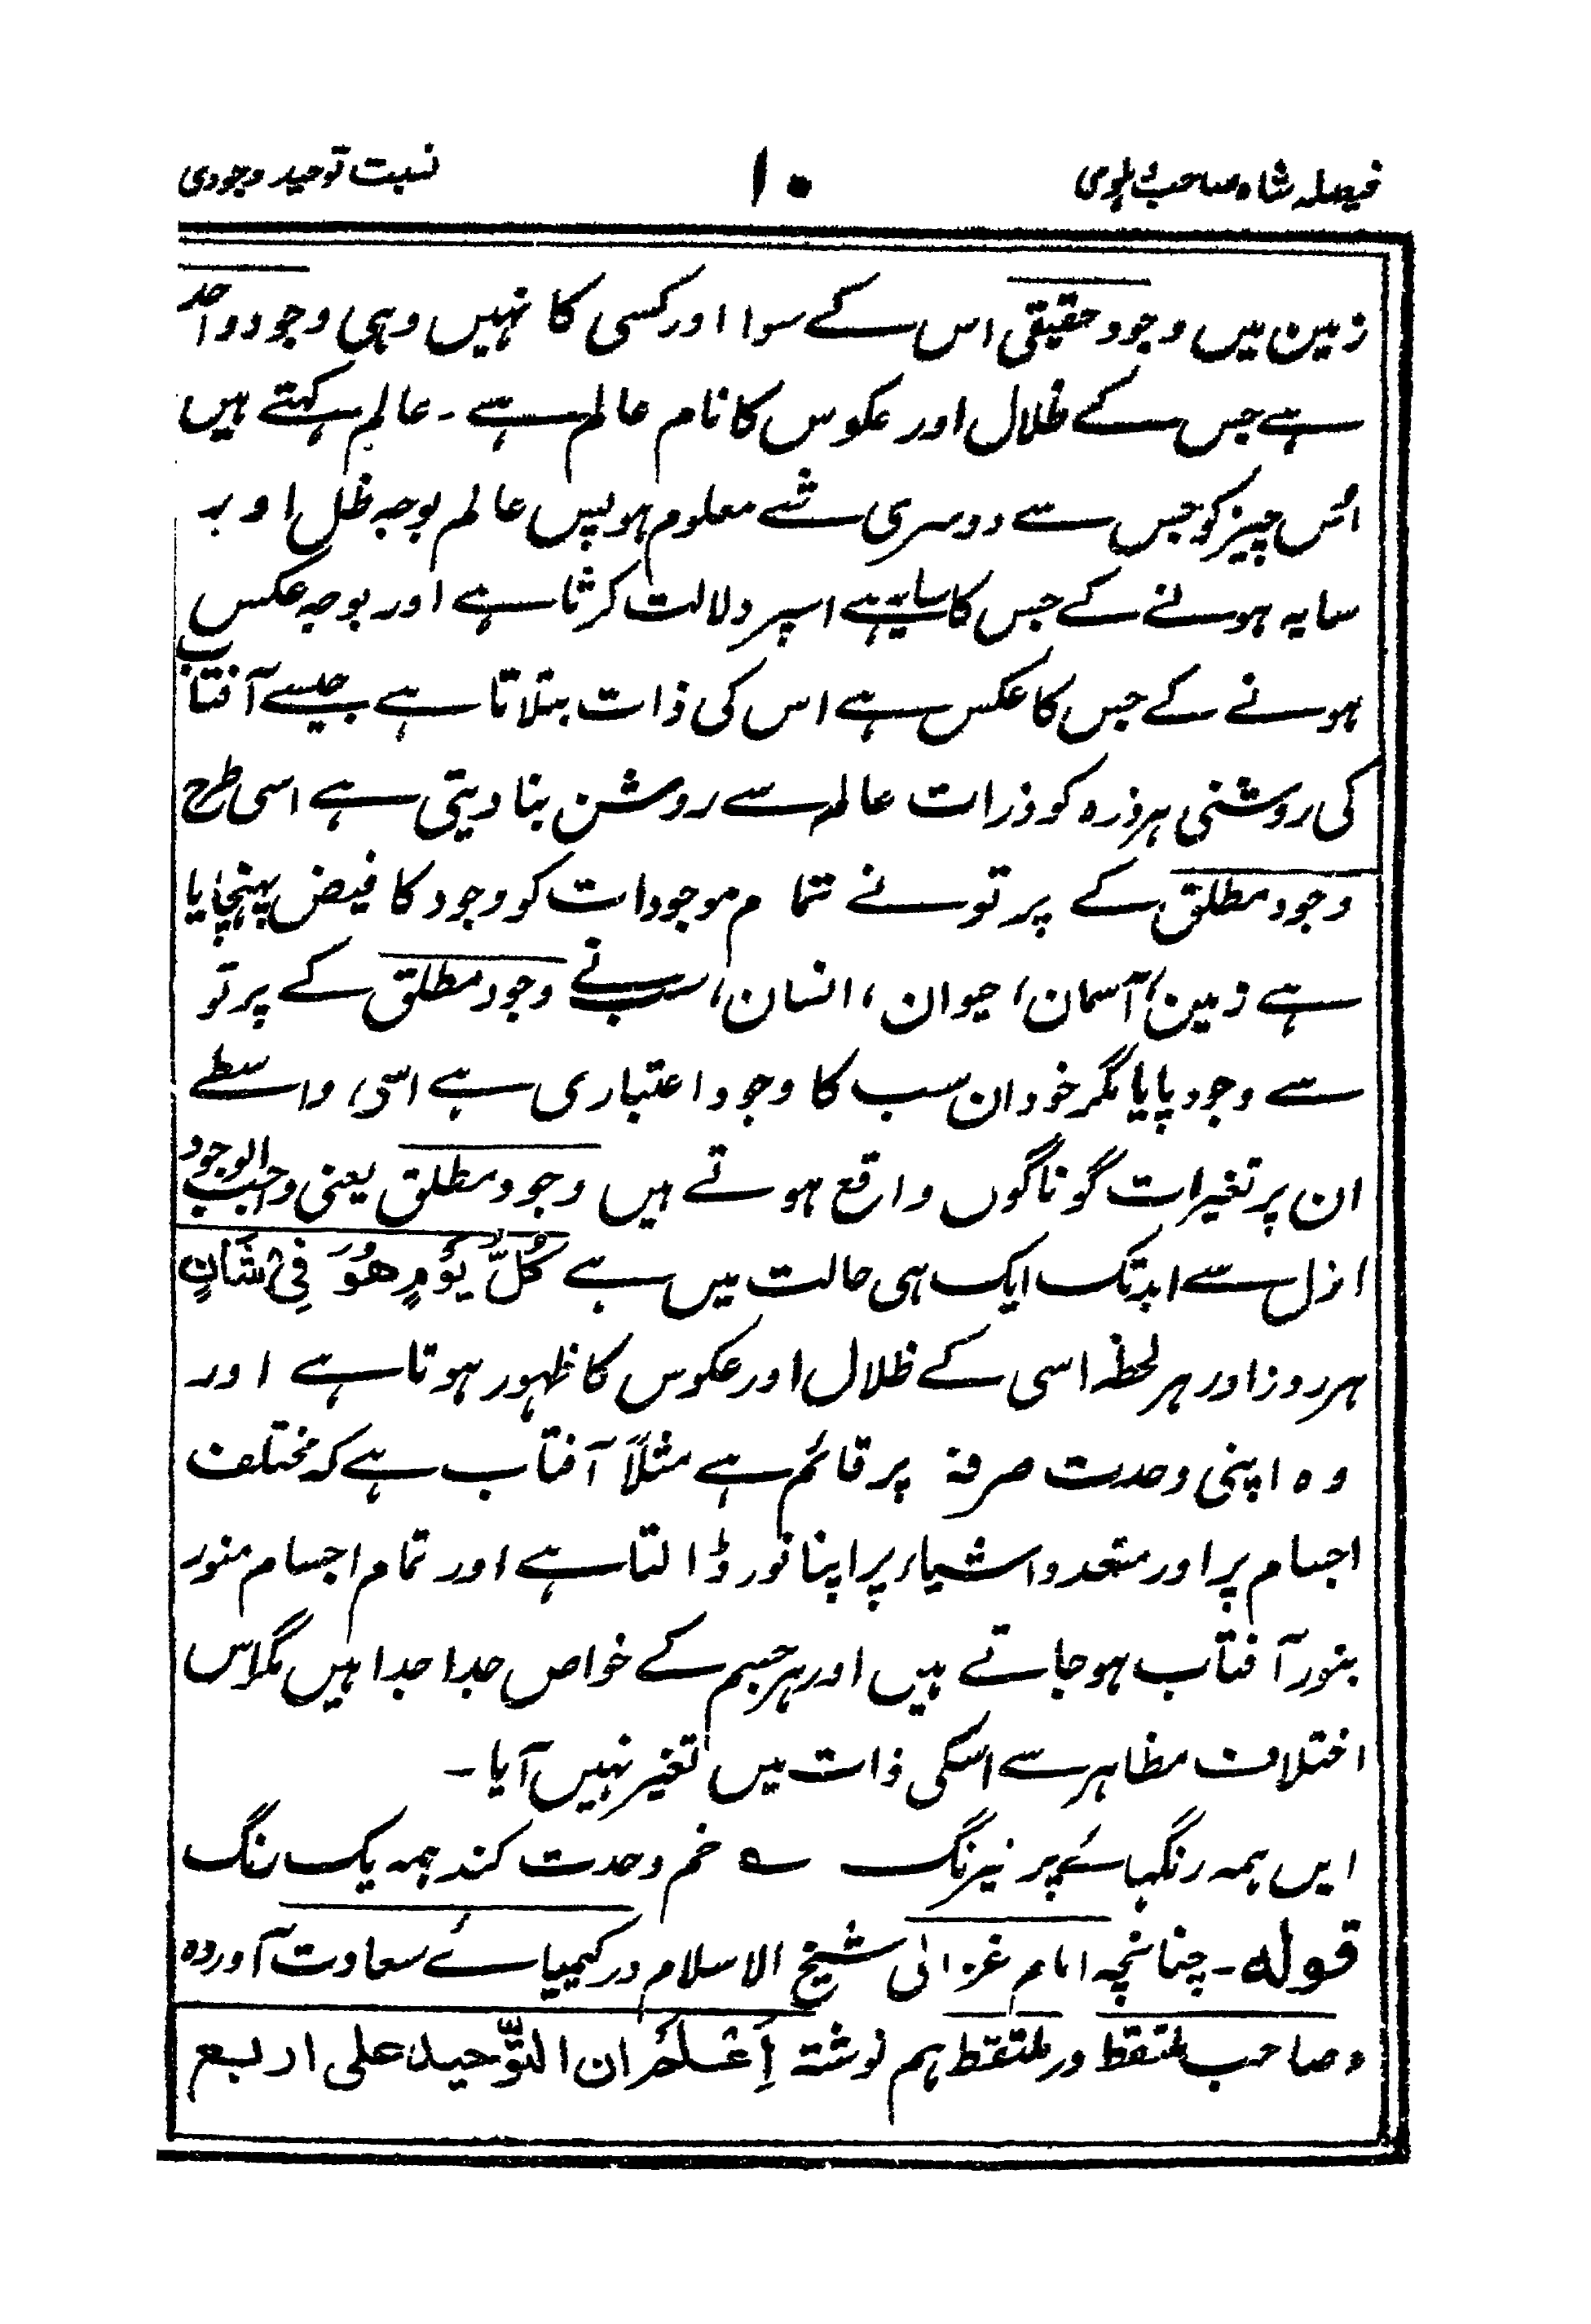 فیصلہ شاہ صاحب دہلوی
۱۰
نسبت توحید وجودی
زمین میں وجود حقیقی اس کے سوا اور کسی کا نہیں وہی وجود واحد
ہے جس کے ظلال اور عکوس کا نام عالم ہے ۔ عالم کہتے ہیں
اُس چیز کو جس سے دوسری شے معلوم ہو پس عالم بوجہ ظل اور
سایہ ہونے کے جس کا سایہ ہے اسپر دلالت کرتا ہے اور بوجہ عکس
ہونے کے جس کا عکس ہے اس کی ذات بتلاتا ہے جیسے آفتاب
کی روشنی ہر ذرہ کو ذرات عالم سے روشن بنا دیتی ہے اسی طرح
وجود مطلق کے پرتو نے تمام موجودات کو وجود کا فیض پہنچایا
ہے زمین، آسمان، حیوان، انسان، سب نے وجود مطلق کے پرتو
سے وجود پایا مگر خود ان سب کا وجود اعتباری ہے اسی واسطے
ان پر تغیرات گوناگوں واقع ہوتے ہیں وجود مطلق یعنی واجب الوجود
ازل سے ابد تک ایک ہی حالت میں ہے كُلَّ يَوْمٍ هُوَ فِيْ شَأنٍ
ہر روز اور ہر لحظہ اسی کے ظلال اور عکوس کا ظہور ہوتا ہے اور
وہ اپنی وحدت صرفہ پر قائم ہے مثلًا آفتاب ہے کہ مختلف
اجسام پر اور متعدد اشیاء پر اپنا نور ڈالتا ہے اور تمام اجسام منور
بنور آفتاب ہو جاتے ہیں اور ہر جسم کے خواص جدا جدا ہیں مگر اس
اختلاف مظاہر سے اسکی ذات میں تغیر نہیں آیا ۔
ایں ہمہ رنگہائے پر نیرنگ ؎ خم وحدت کند ہمہ یک رنگ
قولہ ۔ چنانچہ امام غزالی شیخ الاسلام در کیمیائے سعادت آوردہ
و صاحب ملتقط در ملتقط ہم نوشتہ إَعْلَمْ ان التَّوحید علی اربع